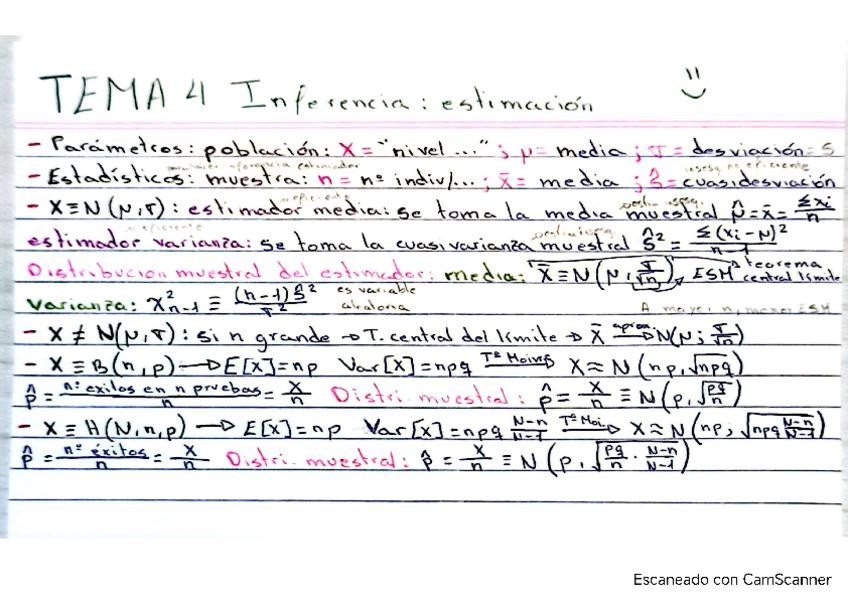 TEMA 4 Inferencia: estimación
- Parámetros: población: X = "nivel ..." ; μ = media ; σ = desviación = S
- Estadísticos: muestra: n = nº indiv/... ; x̄ = media ; ŝ = cuasidesviación
- X≡N(μ,σ): estimador media: se toma la media muestral μ̂ = x̄ = Σxi/n
estimador varianza: se toma la cuasivarianza muestral ŝ² = Σ(xi-μ)²/n-1
Distribucion muestral del estimador: media: X̄≡N(μ, σ/√n) → ESM → teorema central límite
Varianza: X²n-1 ≡ (n-1)ŝ²/σ² es variable aleatoria
A mayor n, menor ESM
- X ≢ N(μ,σ): si n grande → T. central del límite → X̄ aprox→ N(μ; σ/√n)
- X ≡ B(n,p) → E[x]=np Var[x]=npq Tª Moivre→ X≈N(np,√npq)
p̂ = nº exitos en n pruebas/n = X/n Distri. muestral: p̂ = X/n ≡ N(p,√pq/n)
- X ≡ H(N,n,p) → E[x]=np Var[x]=npq N-n/N-1 Tª Moi→ X≈N(np; √npq N-n/N-1)
p̂ = nº éxitos/n = X/n Distri. muestral: p̂ = X/n ≡ N(p,√pq/n · N-n/N-1)
Escaneado con CamScanner